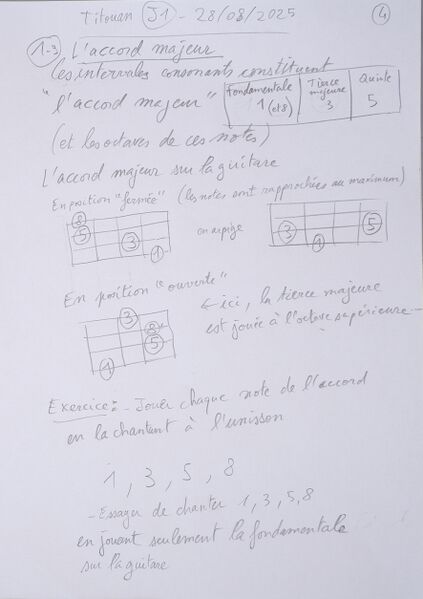 Titouan J1 - 28/08/2025 4
1-3 L'accord majeur
les intervalles consonants constituent
"l'accord majeur" Fondamentale 1 (et 8) Tierce majeure 3 Quinte 5
(et les octaves de ces notes)
L'accord majeur sur la guitare
En position "fermée" (les notes sont rapprochées au maximum)
8
5 3 1 en arpège 3 1 5
En position "ouverte"
3 8 5 1
← ici, la tierce majeure
est jouée à l'octave supérieure
Exercice: - Jouer chaque note de l'accord
en la chantant à l'unisson
1, 3, 5, 8
- Essayer de chanter 1, 3, 5, 8
en jouant seulement la fondamentale
sur la guitare